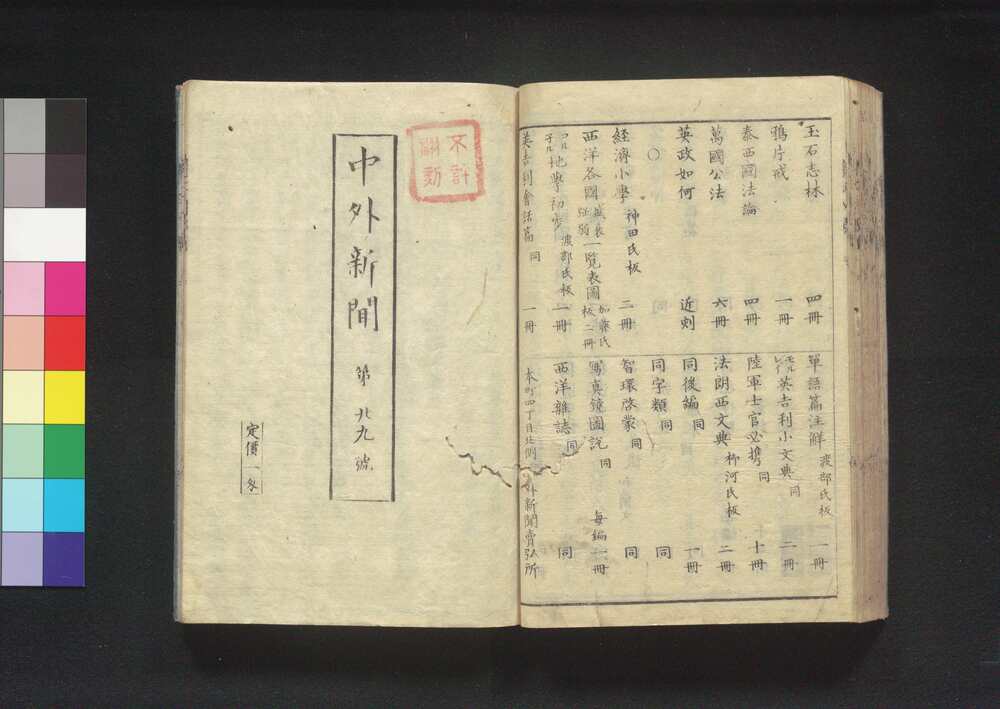 玉石志林 四冊
鴉片戒 一冊
泰西國法論 四冊
萬國公法 六冊
英政如何 近刻
〇
經濟小學 神田氏板 二冊
西洋各國盛衰強弱一覧表圖 加藤氏板 二冊
地學初歩 渡部氏板 一冊
英吉利會話篇 同 一冊
單語篇注解 渡部氏板 一冊
英吉利小文典 同 二冊
陸軍士官必携 同 十冊
法朗西文典 柳河氏板 二冊
同後編 同 一冊
同字類 同 同
智環啓蒙 同 同
寫真鏡圖説 同 毎編一冊
西洋雜誌 同 同
本町四丁目北側 外新聞賣弘所
不許翻刻
中外新聞 第九號
定價一匁